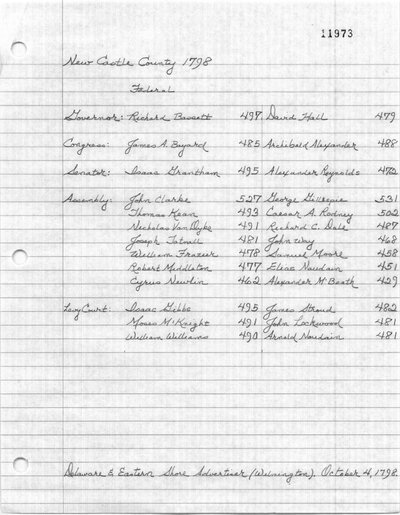 11973
New Castle County 1798
Federal
Governor: Richard Bassett 497 David Hall 479
Congress: James A. Bayard 485 Archibald Alexander 488
Senator: Isaac Grantham 495 Alexander Reynolds 472
Assembly: John Clarke 527 George Gillespie 531
Thomas Kean 493 Caesar A. Rodney 502
Nicholas Van Dyke 491 Richard C. Dale 487
Joseph Tatnall 481 John Way 468
William Frazier 478 Samuel Moore 458
Robert Middleton 477 Elias Naudain 451
Cyrus Newlin 462 Alexander McBeath 429
Levy Court: Isaac Gibbs 495 James Stroud 482
Moses McKnight 491 John Lockwood 481
William Williams 490 Arnold Naudain 481
Delaware & Eastern Shore Advertiser (Wilmington). October 4, 1798.